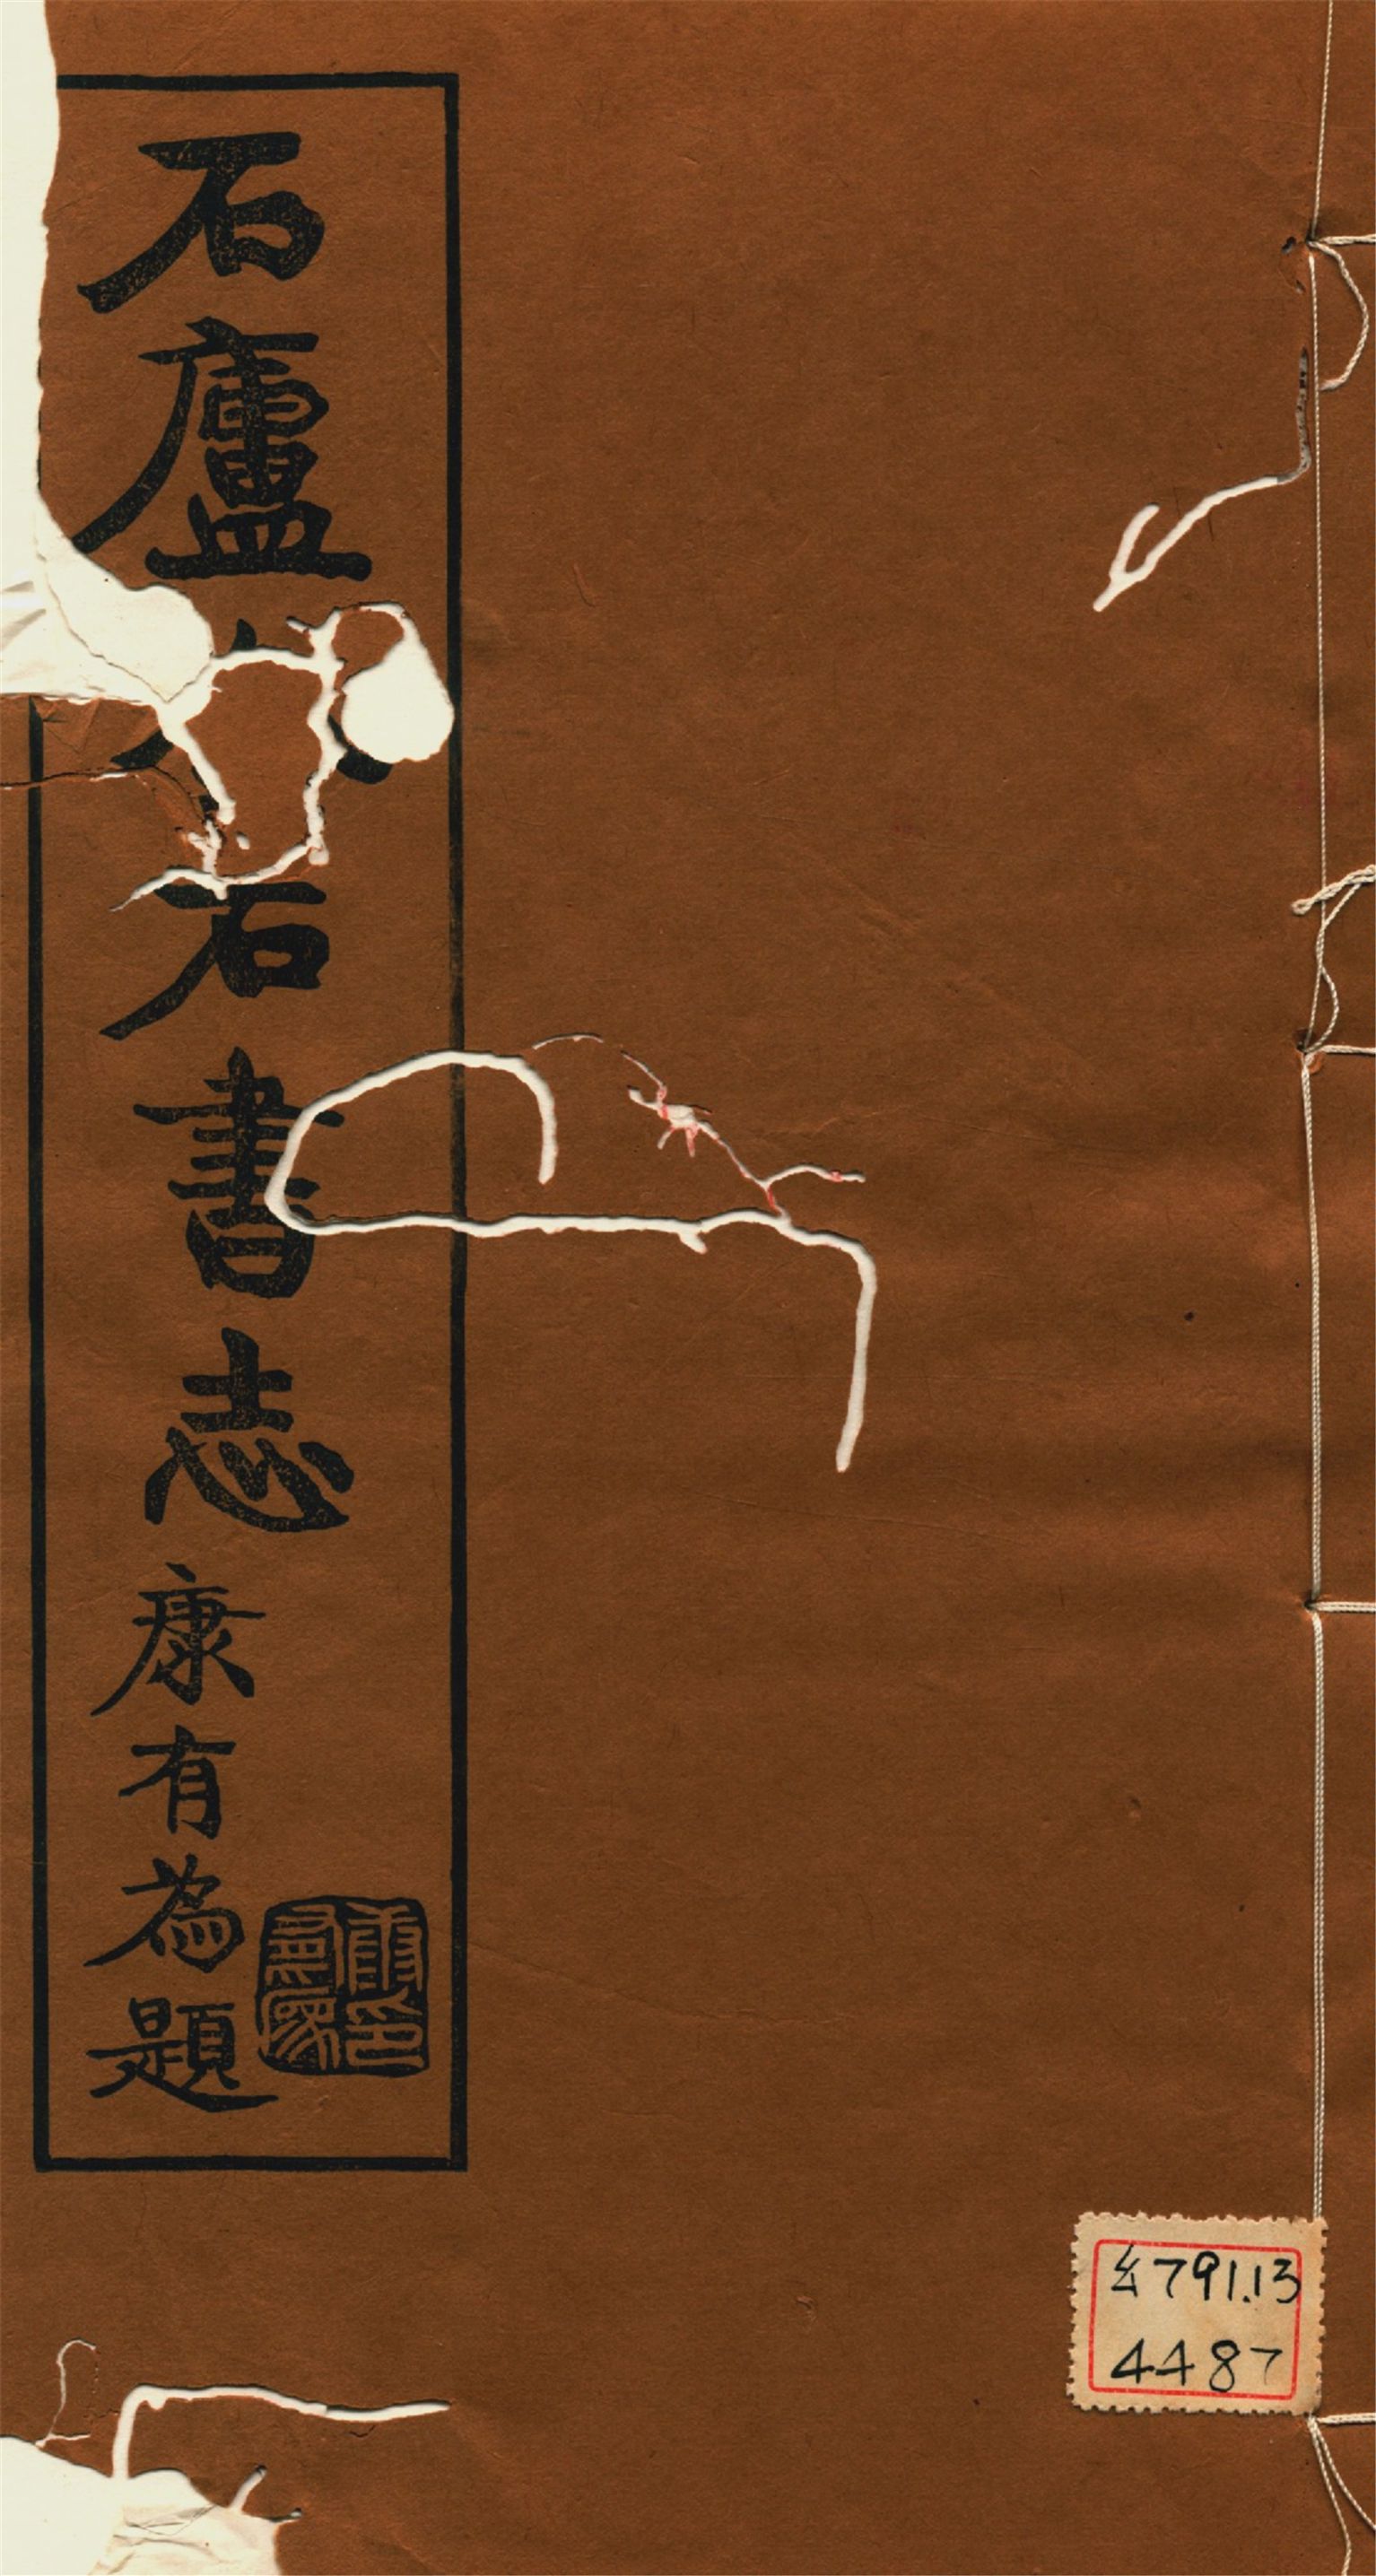 石廬石書志
康有為題
791.13
4487